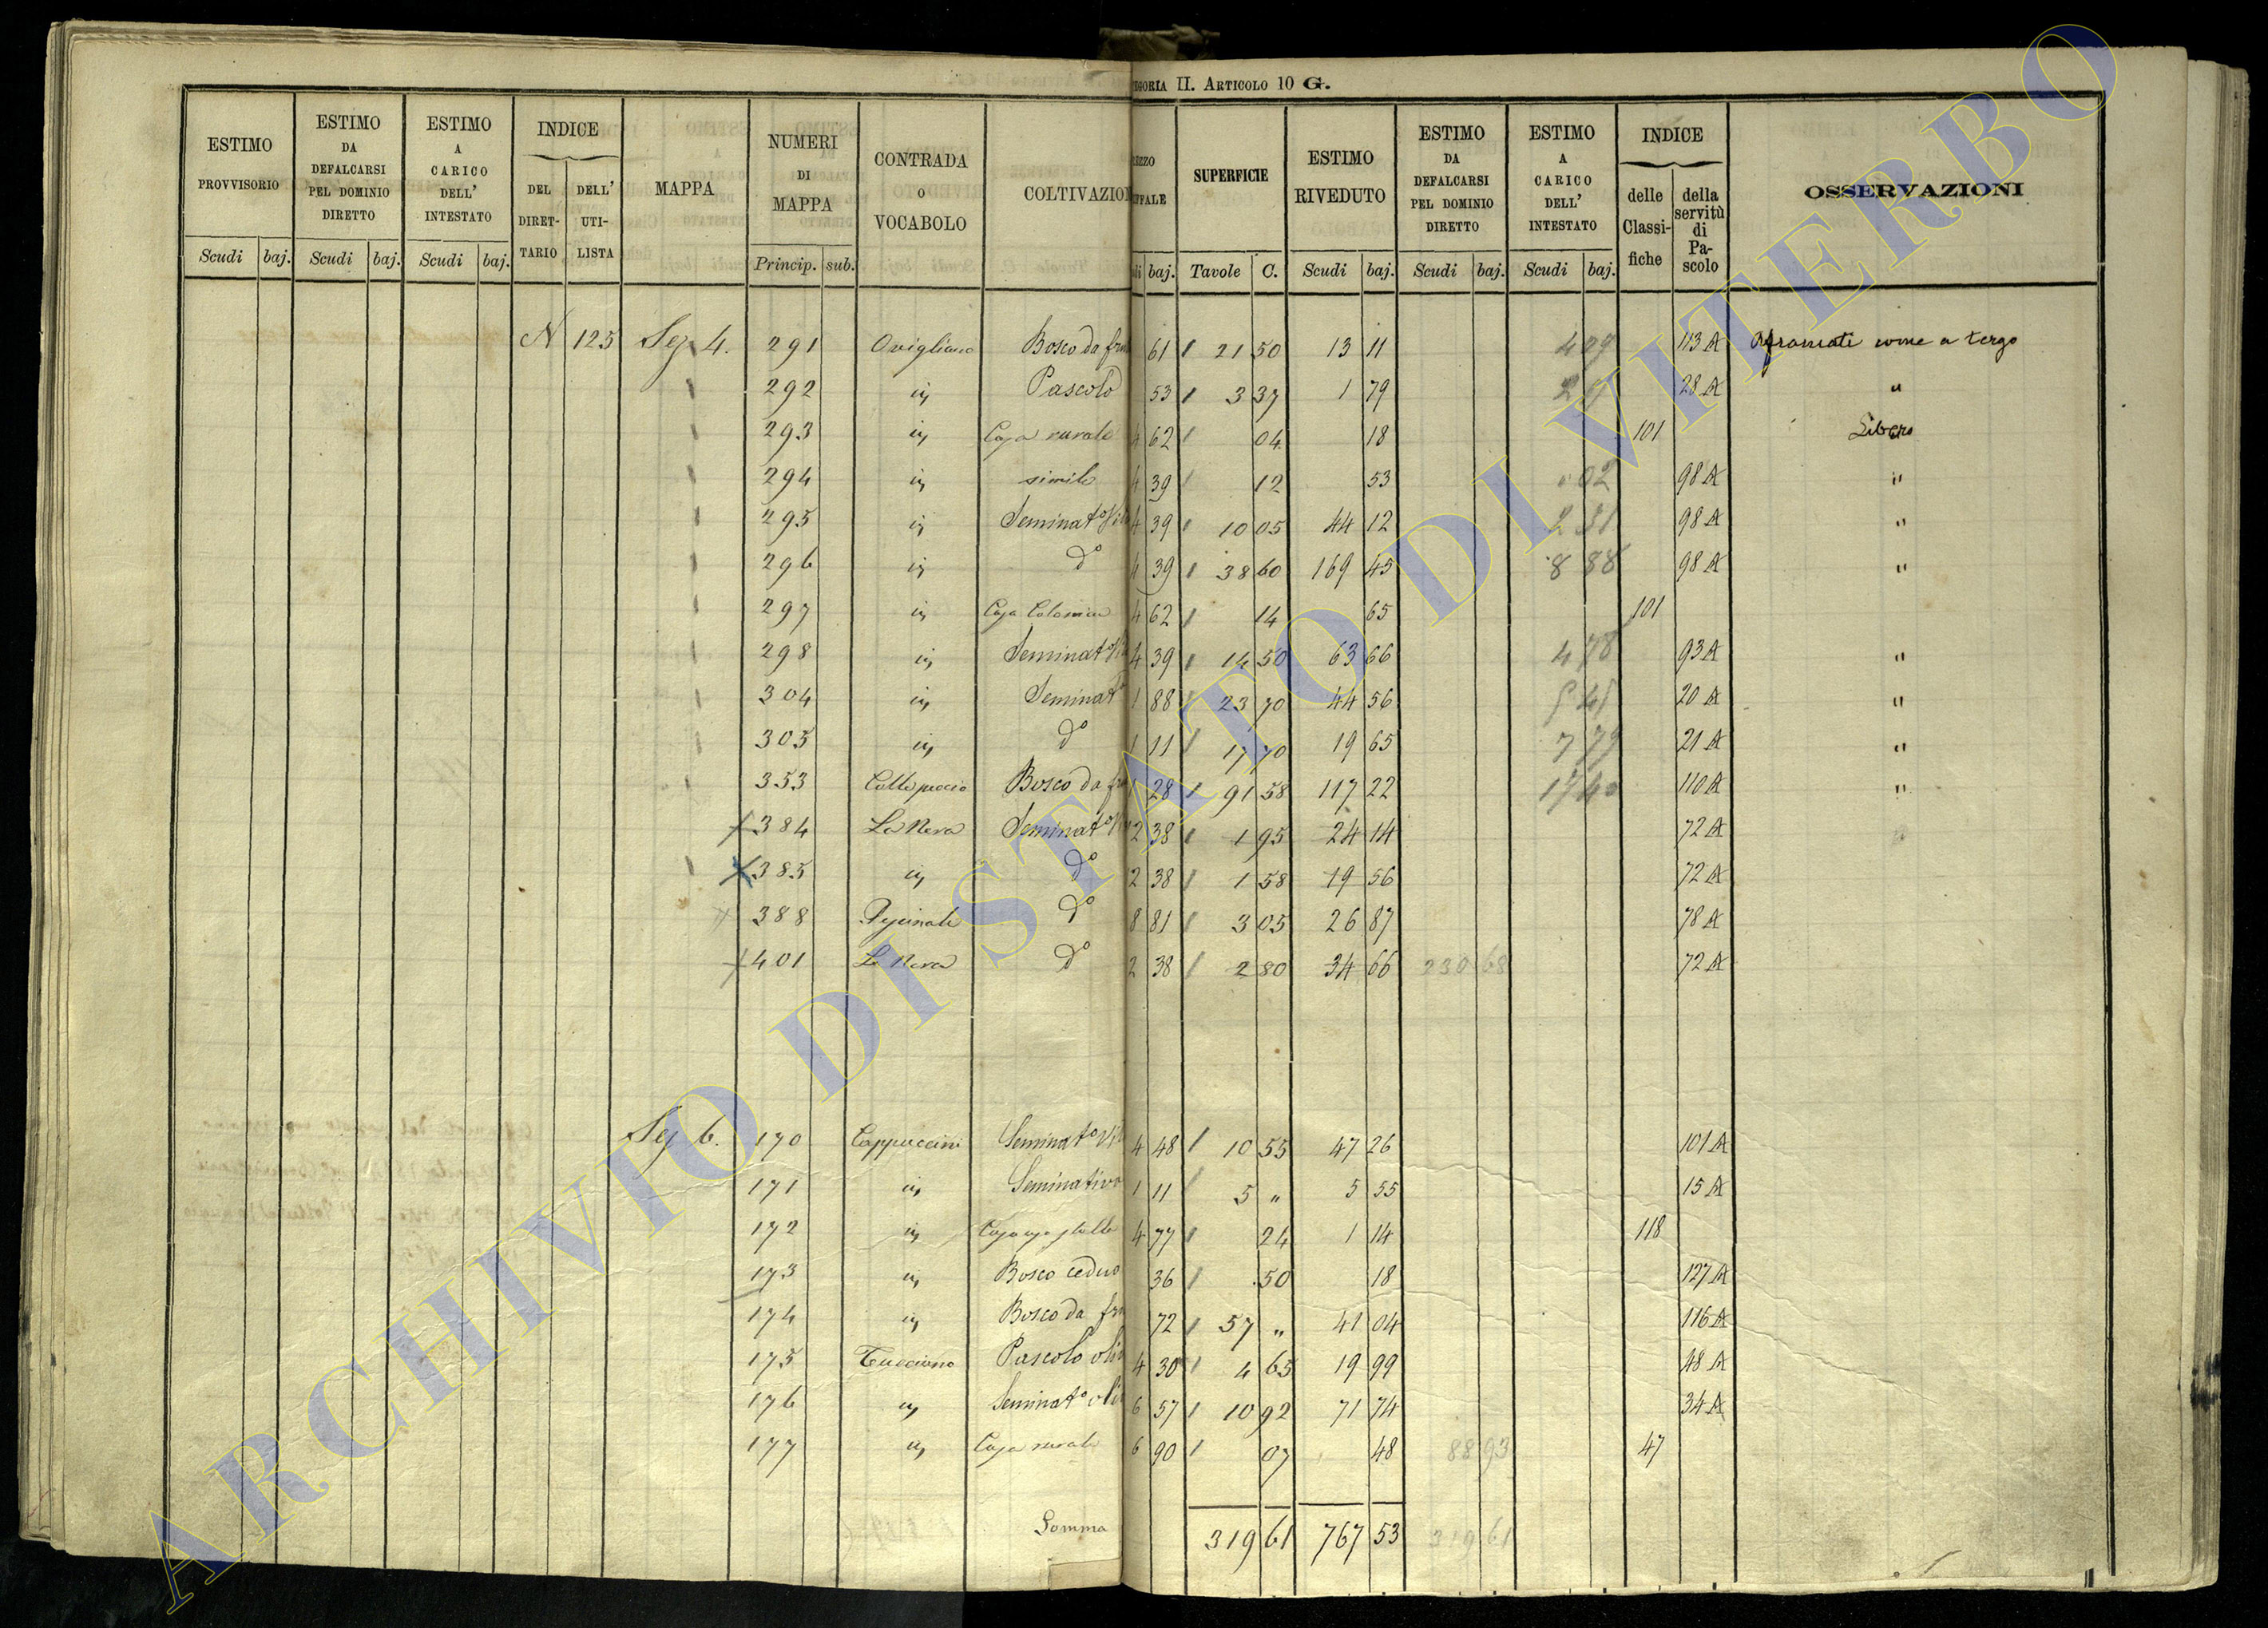 EGORIA II. ARTICOLO 10 G.
ESTIMO PROVVISORIO
ESTIMO DA DEFALCARSI PEL DOMINIO DIRETTO
ESTIMO A CARICO DELL' INTESTATO
INDICE
DEL DIRET-TARIO
DELL' UTI-LISTA
MAPPA
NUMERI DI MAPPA
CONTRADA o VOCABOLO
COLTIVAZION
EZZO
IFFALE
SUPERFICIE
ESTIMO RIVEDUTO
ESTIMO DA DEFALCARSI PEL DOMINIO DIRETTO
ESTIMO A CARICO DELL' INTESTATO
INDICE
delle Classi-fiche
della servitù di Pa-scolo
OSSERVAZIONI
Scudi baj. Scudi baj. Scudi baj. Princip. sub. di baj. Tavole C. Scudi baj. Scudi baj. Scudi baj.
N 125 Sez. 4. 291 Ovigliano Bosco da fru 61 21 50 13 11 4 09 113 A Affrancati come a tergo
292 " Pascolo 53 3 37 1 79 28 A "
293 " Casa rurale 4 62 04 18 101 Libero
294 " simile 4 39 12 53 02 98 A "
295 " Seminat.o 4 39 10 05 44 12 2 31 98 A "
296 " d.o 4 39 38 60 169 45 8 88 98 A "
297 " Casa Colonica 4 62 14 65 101
298 " Seminat.o 4 39 14 50 63 66 4 78 93 A "
304 " Seminat.o 1 88 23 70 44 56 20 A "
305 " d.o 1 11 17 70 19 65 7 79 21 A "
353 Bosco da fru 1 28 91 58 117 22 17 40 110 A "
384 La Nera Seminat.o 2 38 1 95 24 14 72 A
385 " d.o 2 38 1 58 19 56 72 A
388 d.o 8 81 3 05 26 87 78 A
401 La Nera d.o 2 38 2 80 34 66 230 68 72 A
Sez. 6. 170 Cappuccini Seminat.o 4 48 10 55 47 26 101 A
171 " Seminativo 1 11 5 " 5 55 15 A
172 " 4 77 24 1 14 118
173 " Bosco ceduo 36 50 18 127 A
174 " Bosco da fru 72 57 " 41 04 116 A
175 Tucciano Pascolo oliv 4 30 4 65 19 99 48 A
176 " Seminat.o oliv 6 57 10 92 71 74 34 A
177 " Casa rurale 6 90 07 48 88 93 47
Somma 319 61 767 53 319 61
ARCHIVIO DI STATO DI VITERBO